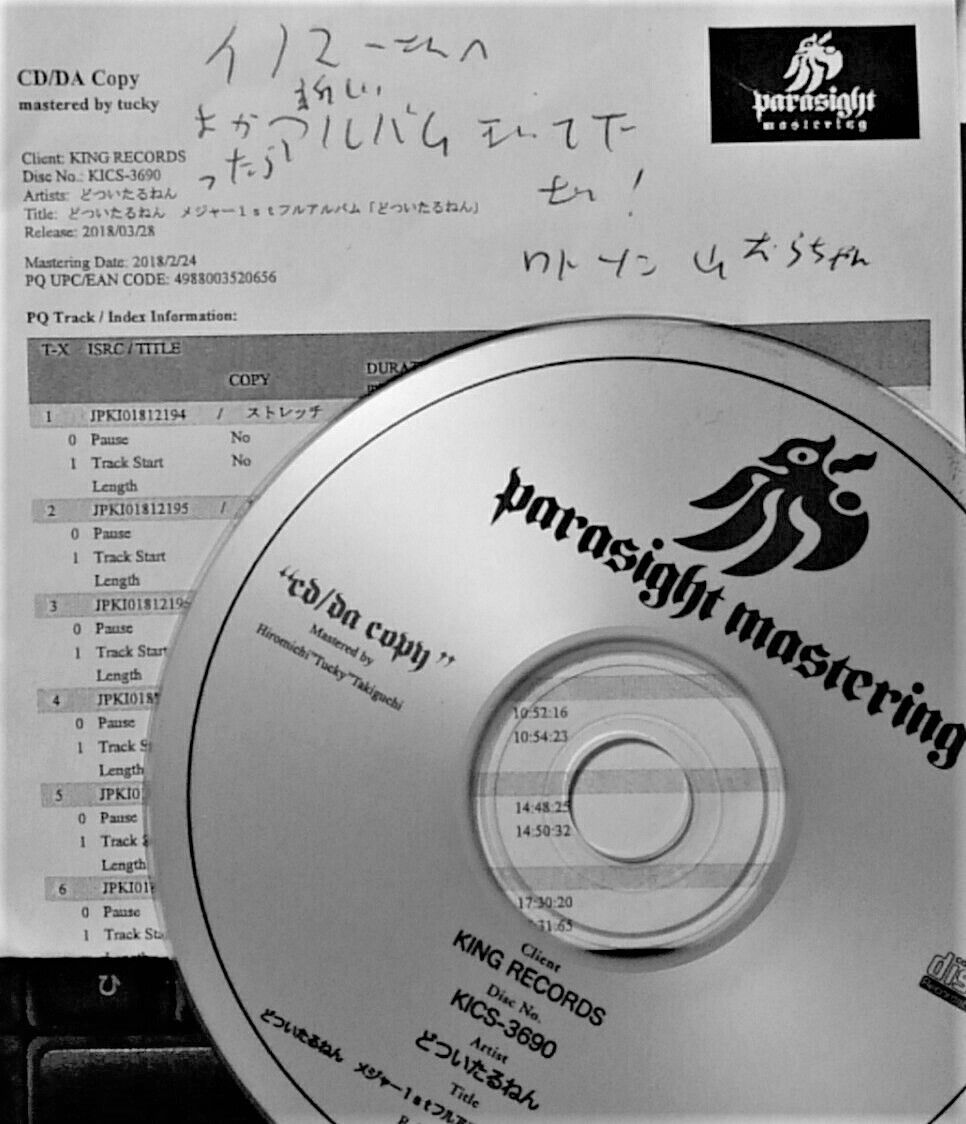 イノマーさんへ
新しい
よか アルバム
ったら
CD/DA Copy
mastered by tucky
parasight
mastering
Client: KING RECORDS
Disc No.: KICS-3690
Artists: どついたるねん
Title: どついたるねん メジャー1stフルアルバム「どついたるねん」
Release: 2018/03/28
Mastering Date: 2018/2/24
PQ UPC/EAN CODE: 4988003520656
PQ Track / Index Information:
T-X ISRC / TITLE
COPY
1 JPKI01812194 / ストレッチ
0 Pause No
1 Track Start No
Length
2 JPKI01812195 /
0 Pause
1 Track Start
Length
3 JPKI0181219
0 Pause
1 Track Start
Length
4 JPKI018
0 Pause
1 Track
Length
5 JPKI0
0 Pause
1 Track
Length
6 JPKI01
0 Pause
1 Track
parasight mastering
"cd/da copy"
Mastered by
Hiromichi"Tucky"Takiguchi
10:52:16
10:54:23
14:48:25
14:50:32
17:30:20
31:65
Client
KING RECORDS
Disc No.
KICS-3690
Artist
どついたるねん
Title
どついたるねん メジャー1stフルア
ひ